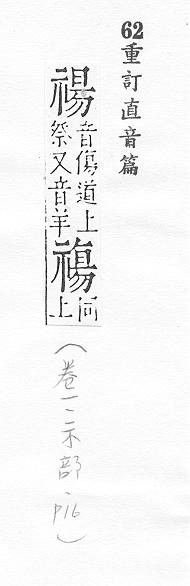 62重訂直音篇
禓
音傷道上
祭又音羊
同
上
(卷一、示部、p16)